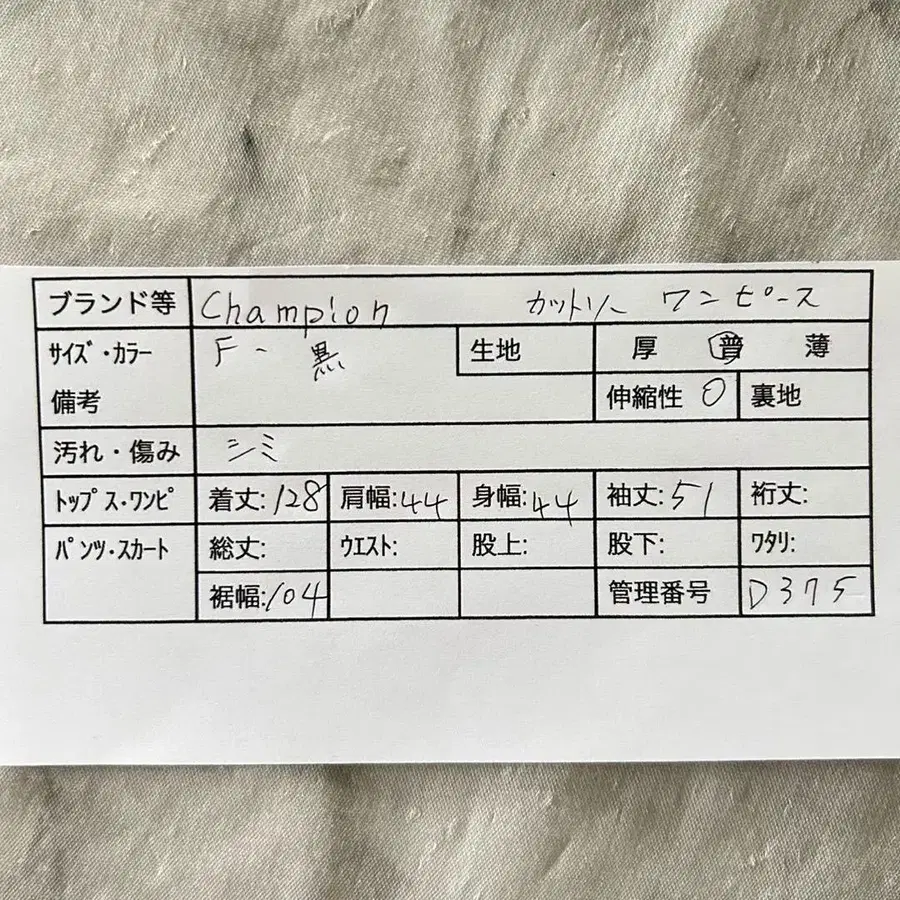 ブランド等 Champion カットソー ワンピース
サイズ・カラー F - 黒 生地 厚 普 薄
備考 伸縮性 〇 裏地
汚れ・傷み シミ
トップス・ワンピ 着丈:128 肩幅:44 身幅:44 袖丈:51 裄丈:
パンツ・スカート 総丈: ウエスト: 股上: 股下: ワタリ:
裾幅:104 管理番号 D375